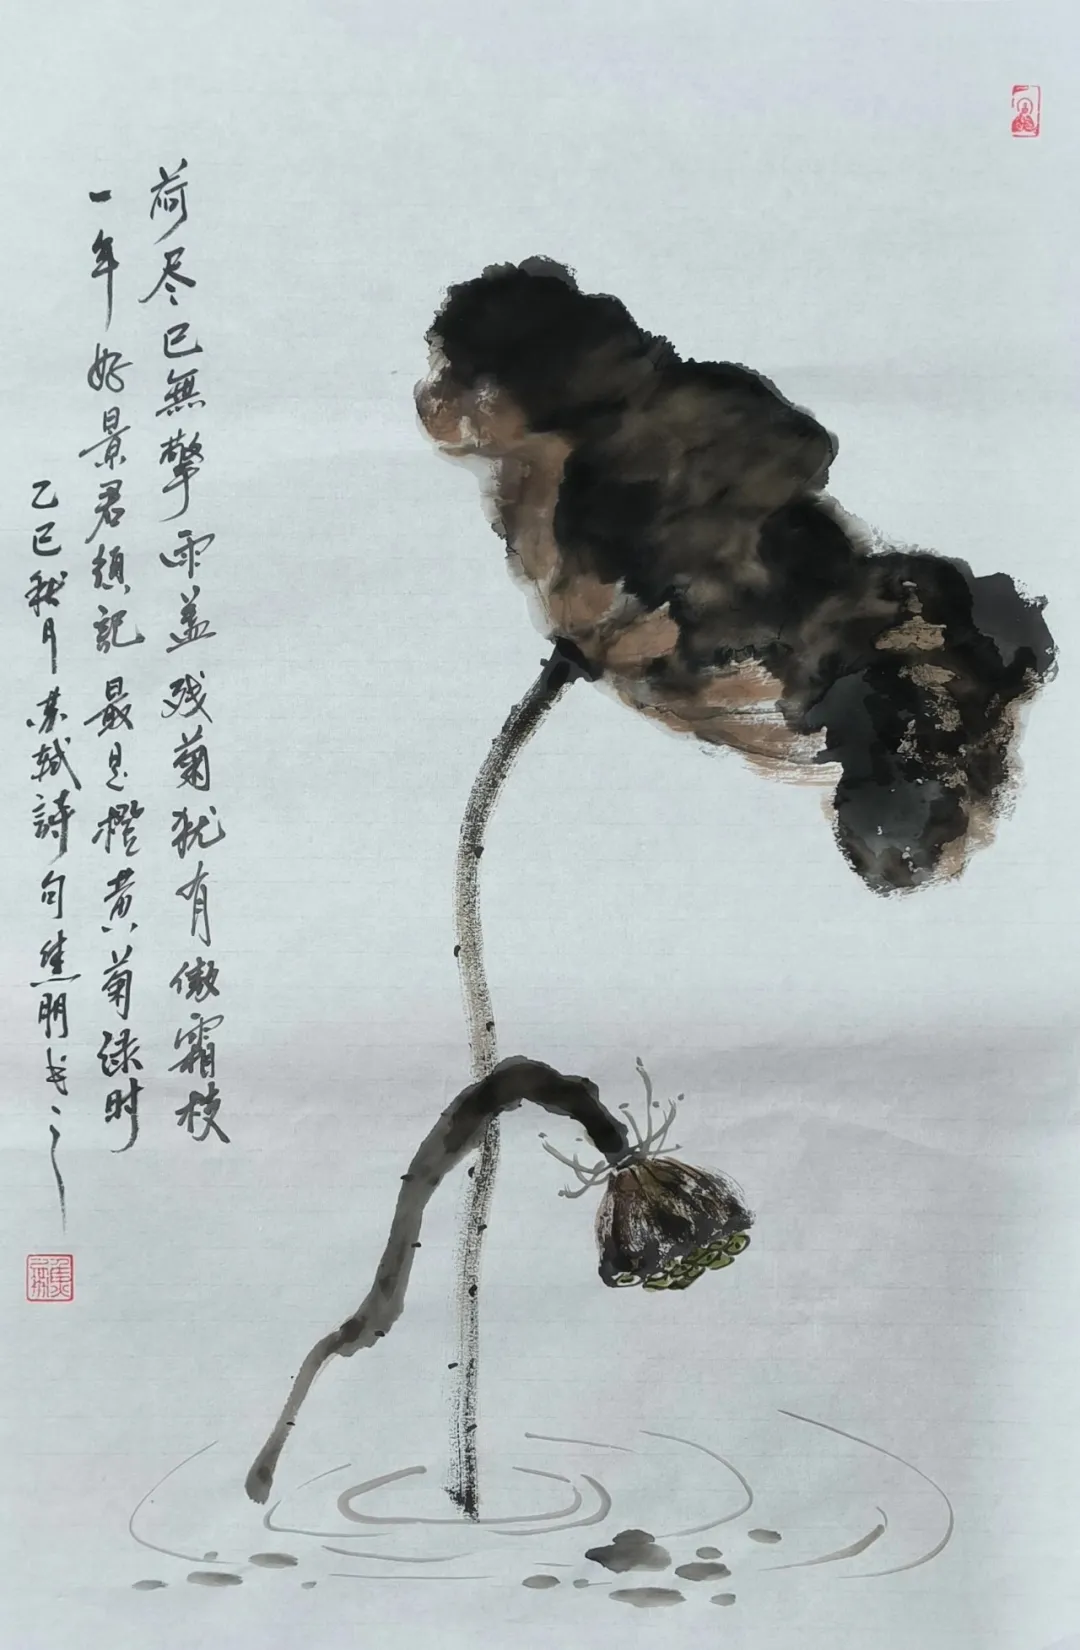 荷尽已無擎雨盖残菊犹有傲霜枝
一年好景君須記最是橙黄菊绿时
乙巳秋月苏軾詩句焦朋书之